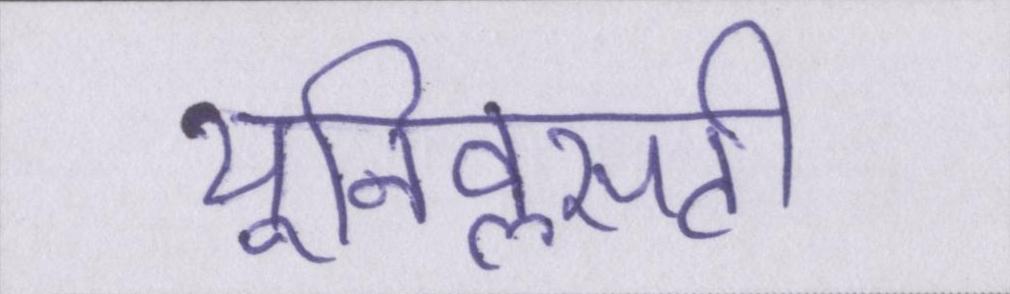 यूनिव्लसटी